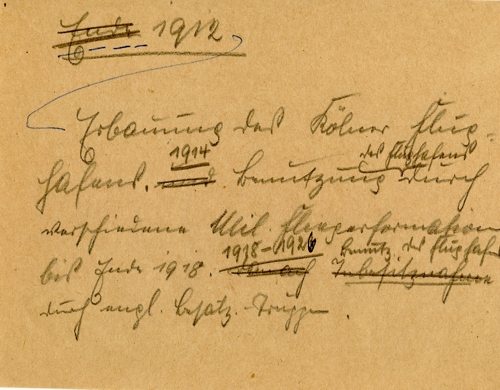 Ende 1912
Erbauung des Kölner Flug-
1914 des Flughafens
hafens. und. Benutzung durch
verschiedene Mil. Fliegerformation
1918-1926 Benutz. des Flughafens
bis Ende 1918. danach Inbesitznahme
durch engl. Besatz. Truppen.